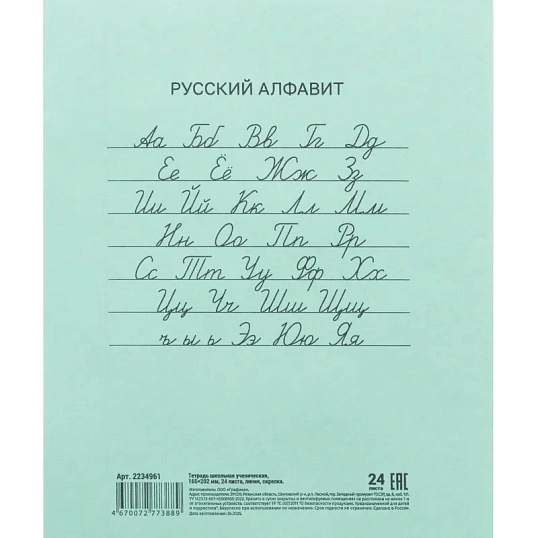 РУССКИЙ АЛФАВИТ
Аа Бб Вв Гг Дд
Ее Ёё Жж Зз
Ии Йй Кк Лл Мм
Нн Оо Пп Рр
Сс Тт Уу Фф Хх
Цц Чч Шш Щщ
ъ ы ь Ээ Юю Яя
Арт. 2234961
4 670072 773889
Тетрадь школьная ученическая,
165×202 мм, 24 листа, линия, скрепка.
24
листа
EAC